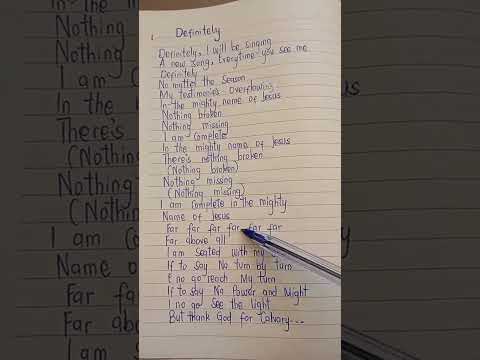 Definitely
Definitely, I will be singing
A new song, Everytime you see me
Definitely
No matter the Season
My testimonies Overflowing
In the mighty name of Jesus
Nothing broken
Nothing missing
I am Complete
In the mighty name of Jesus
There's nothing broken
(Nothing broken)
Nothing missing
(Nothing missing)
I am complete in the mighty
Name of Jesus
Far far far far far far
Far above all
I am Seated with my
If to say No turn by turn
E no go reach My turn
If to say No Power and Might
I no go See the light
But thank God for Calvary...